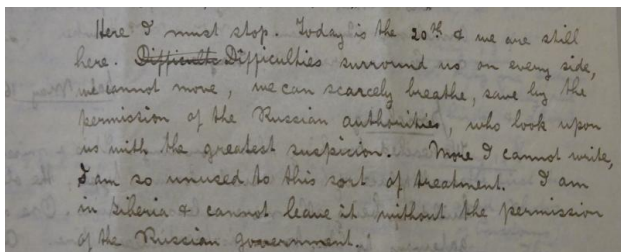 Here I must stop. Today is the 20th & we are still
here. Difficults Difficulties surround us on every side,
we cannot move, we can scarcely breathe, save by the
permission of the Russian authorities, who look upon
us with the greatest suspicion. More I cannot write,
I am so unused to this sort of treatment. I am
in Siberia & cannot leave it without the permission
of the Russian government.